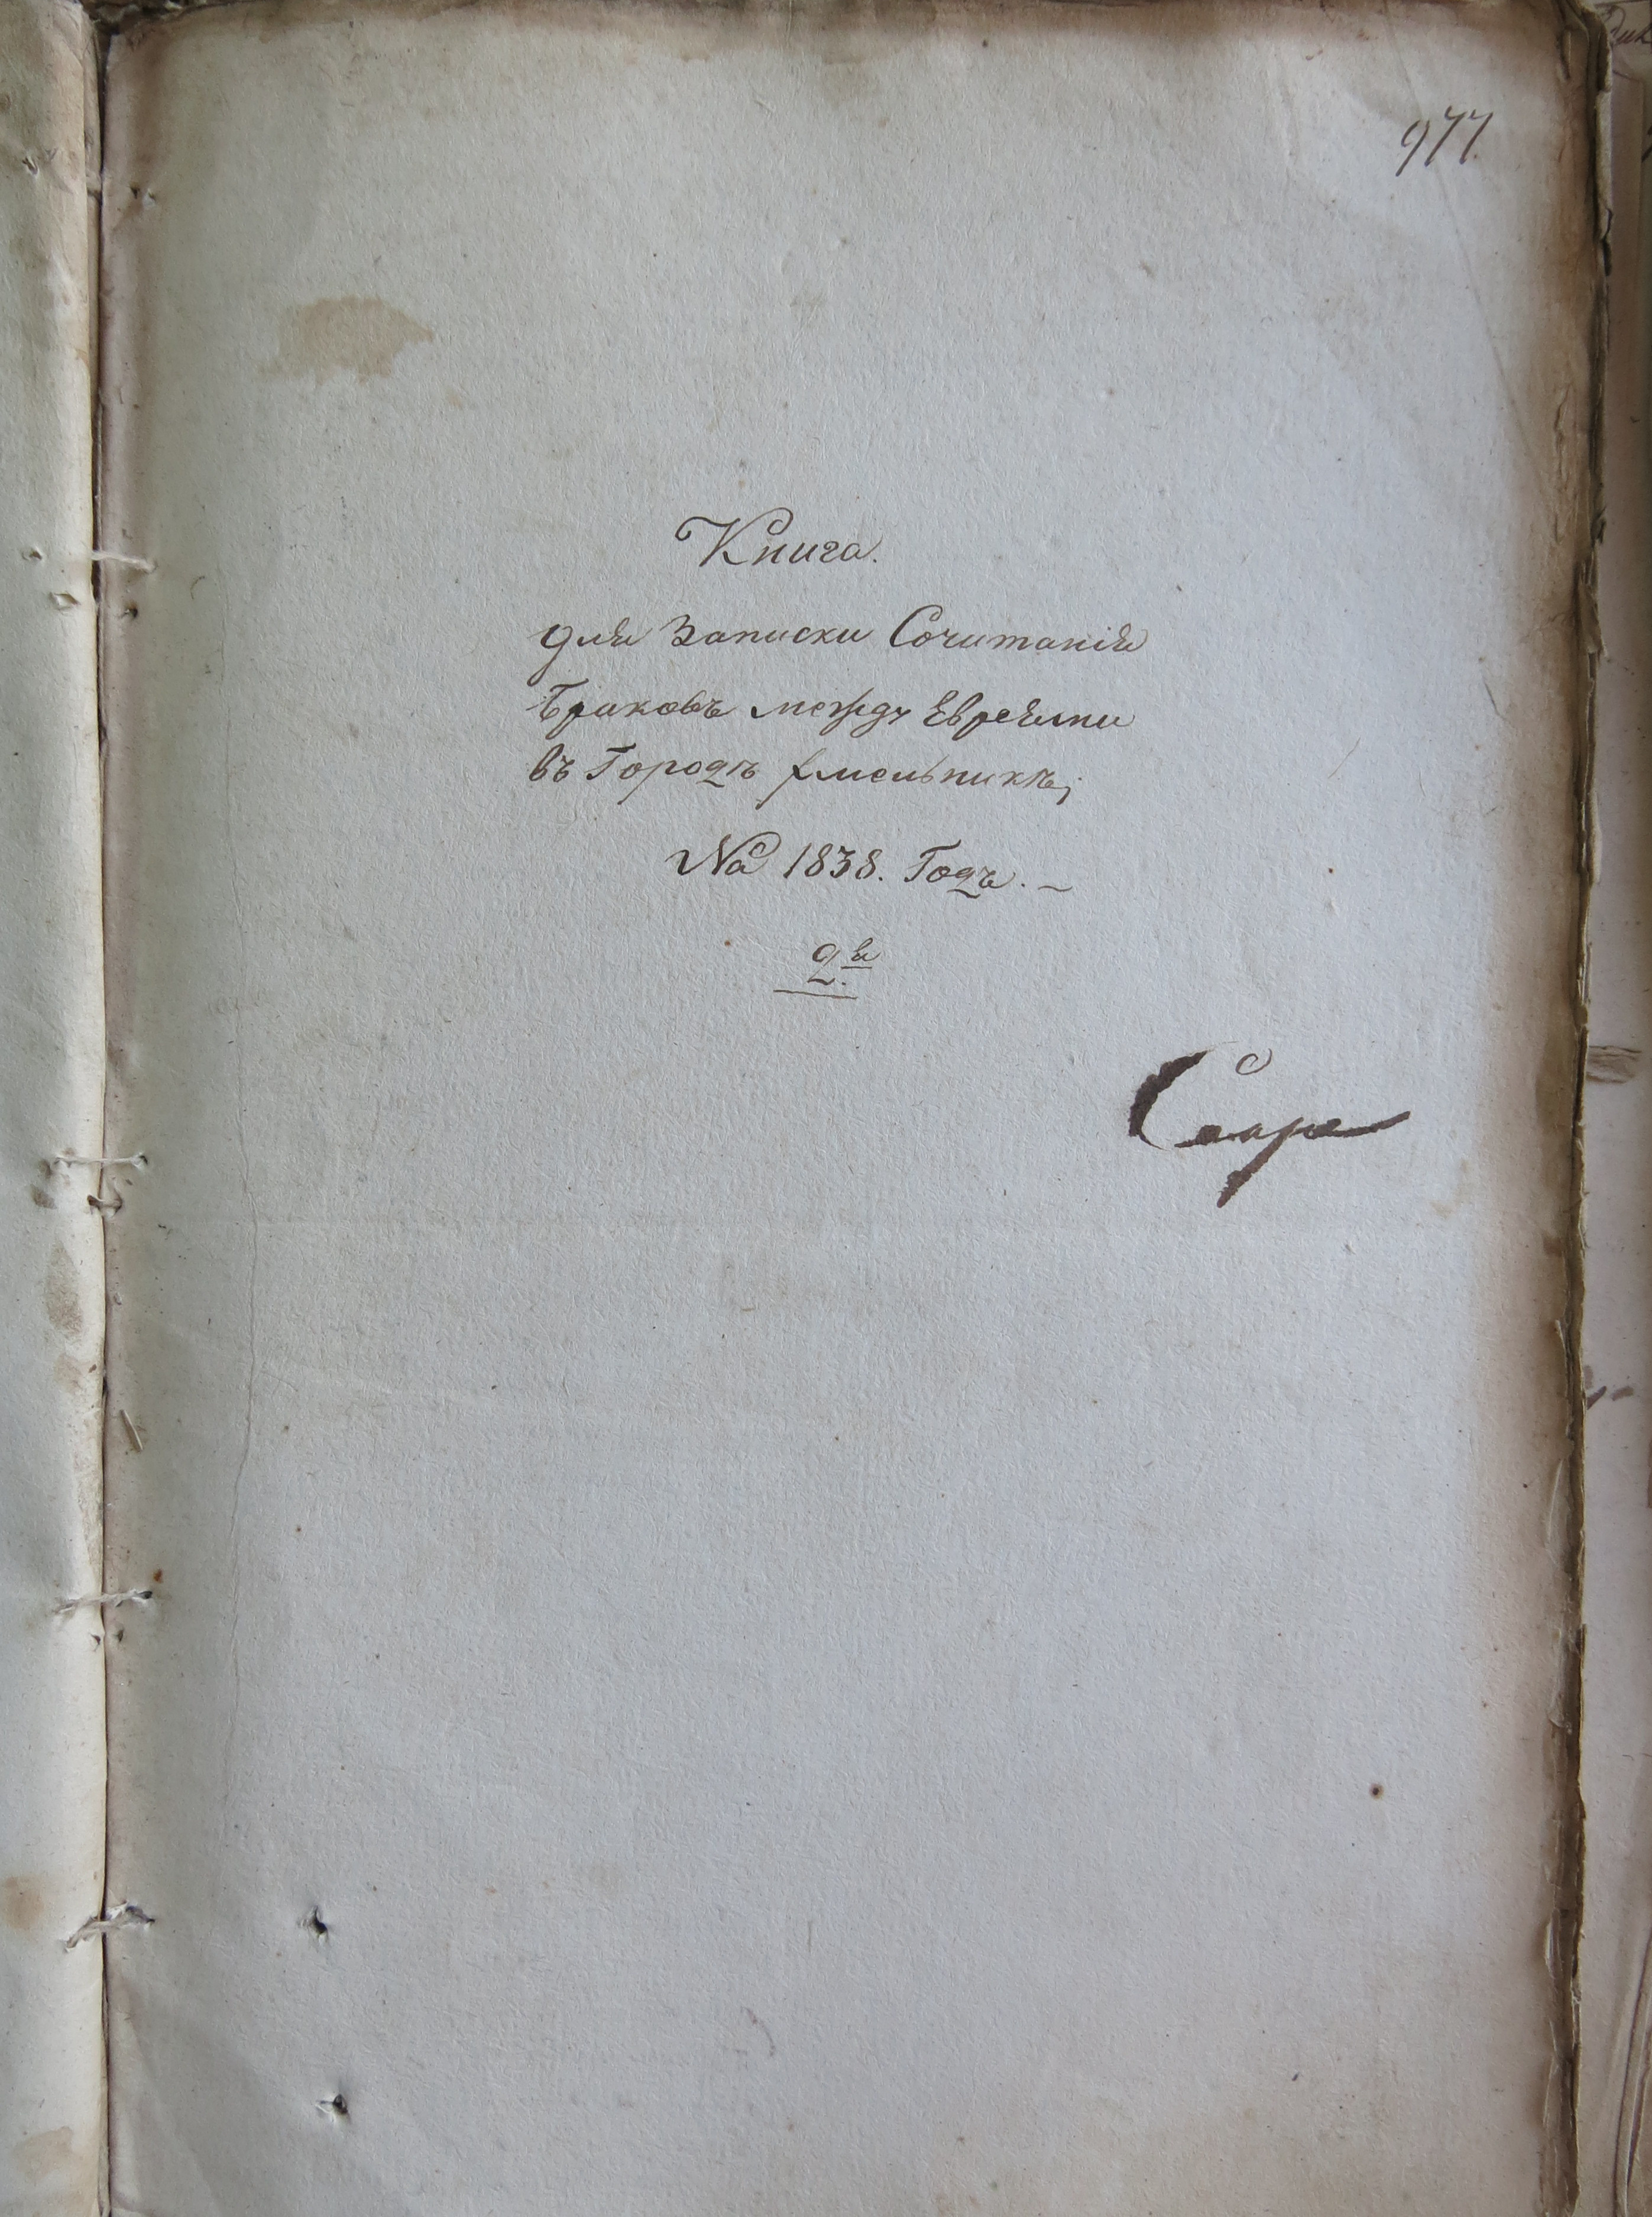 977.
Книга.
для Записки Сочитанія
Браковъ между Евреями
въ Городѣ Хмельникѣ;
На 1838. Годъ. —
2.я